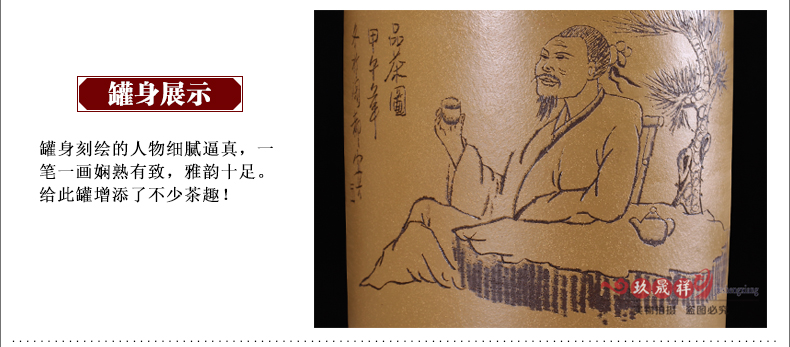 罐身展示
罐身刻绘的人物细腻逼真，一
笔一画娴熟有致，雅韵十足。
给此罐增添了不少茶趣！
品茶圖
甲午年
玖晟祥
实物拍摄 盗图必究